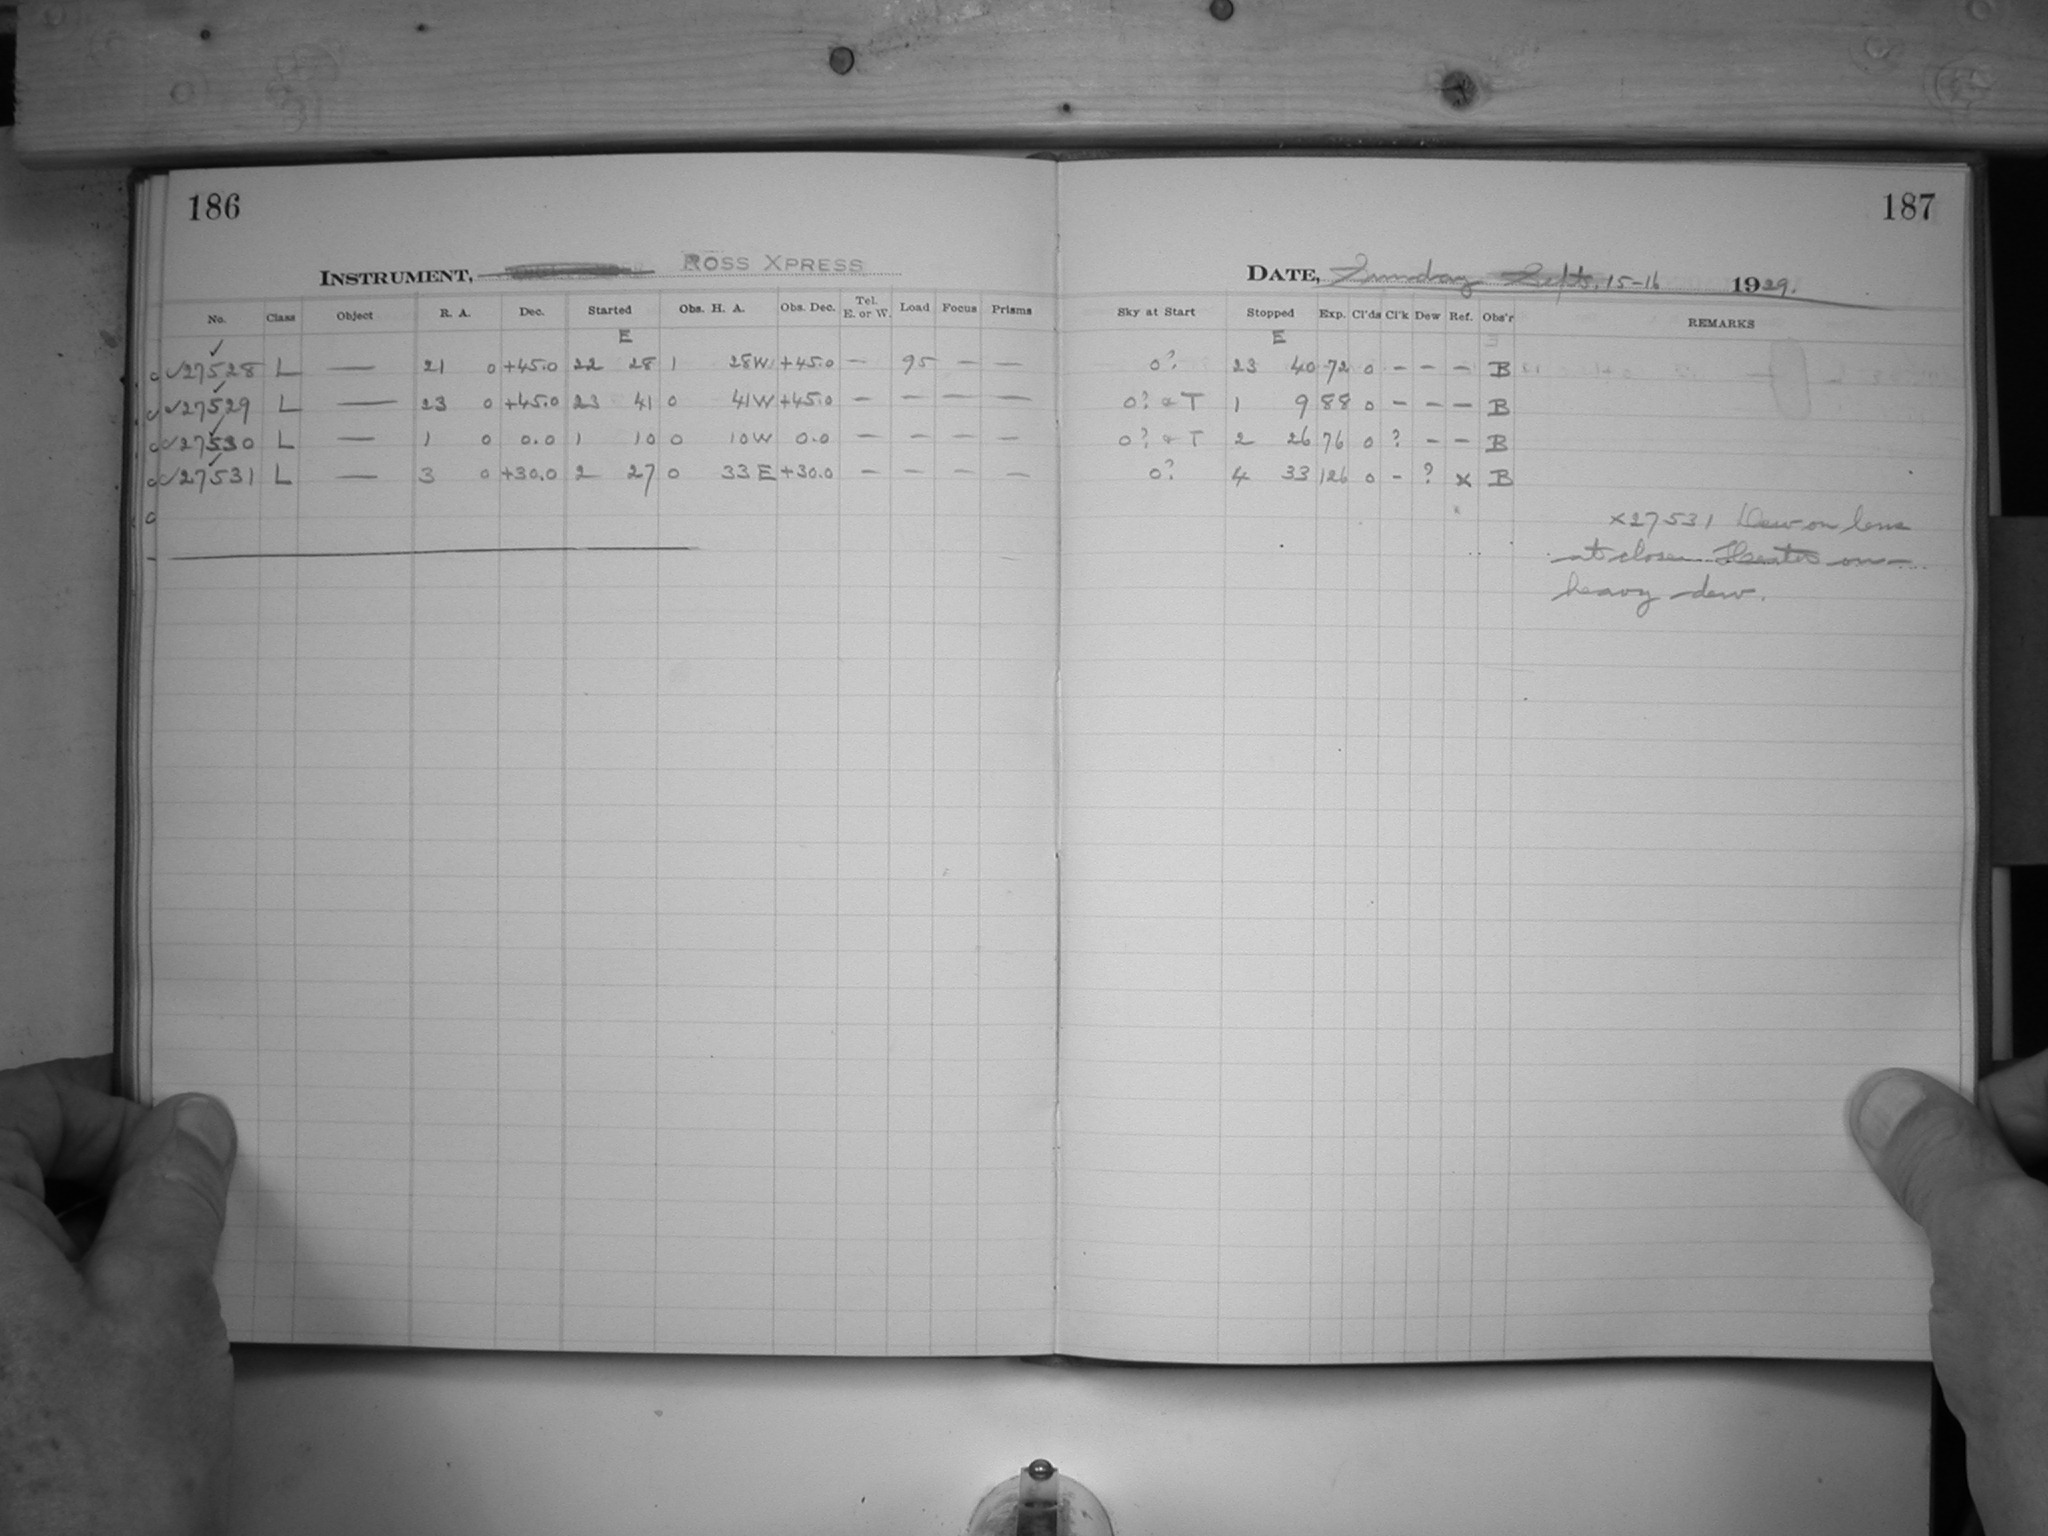 186
187
INSTRUMENT, ROSS XPRESS
DATE, Sunday Sept. 15-16 1929.
No. Class Object R. A. Dec. Started Obs. H. A. Obs. Dec. Tel. E. or W. Load Focus Prisms Sky at Start Stopped Exp. Cl'ds Cl'k Dew Ref. Obs'r REMARKS
E E
✓27528 L — 21 0 +45.0 22 28 1 28W +45.0 — 95 — — 0? 23 40 72 0 – – – B
✓27529 L — 23 0 +45.0 23 41 0 41W +45.0 — — — — 0? & T 1 9 88 0 – – – B
✓27530 L — 1 0 0.0 1 10 0 10W 0.0 — — — — 0? & T 2 26 76 0 ? – – B
✓27531 L — 3 0 +30.0 2 27 0 33E +30.0 — — — — 0? 4 33 126 0 – ? x B
x27531 Dew on lens
at close. Heater on —
heavy dew.